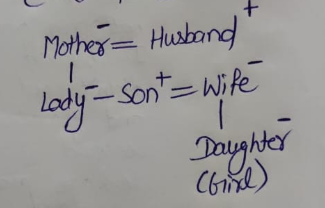 Mother⁻ = Husband⁺
Lady⁻ – Son⁺ = Wife⁻
Daughter⁻
(Girl)